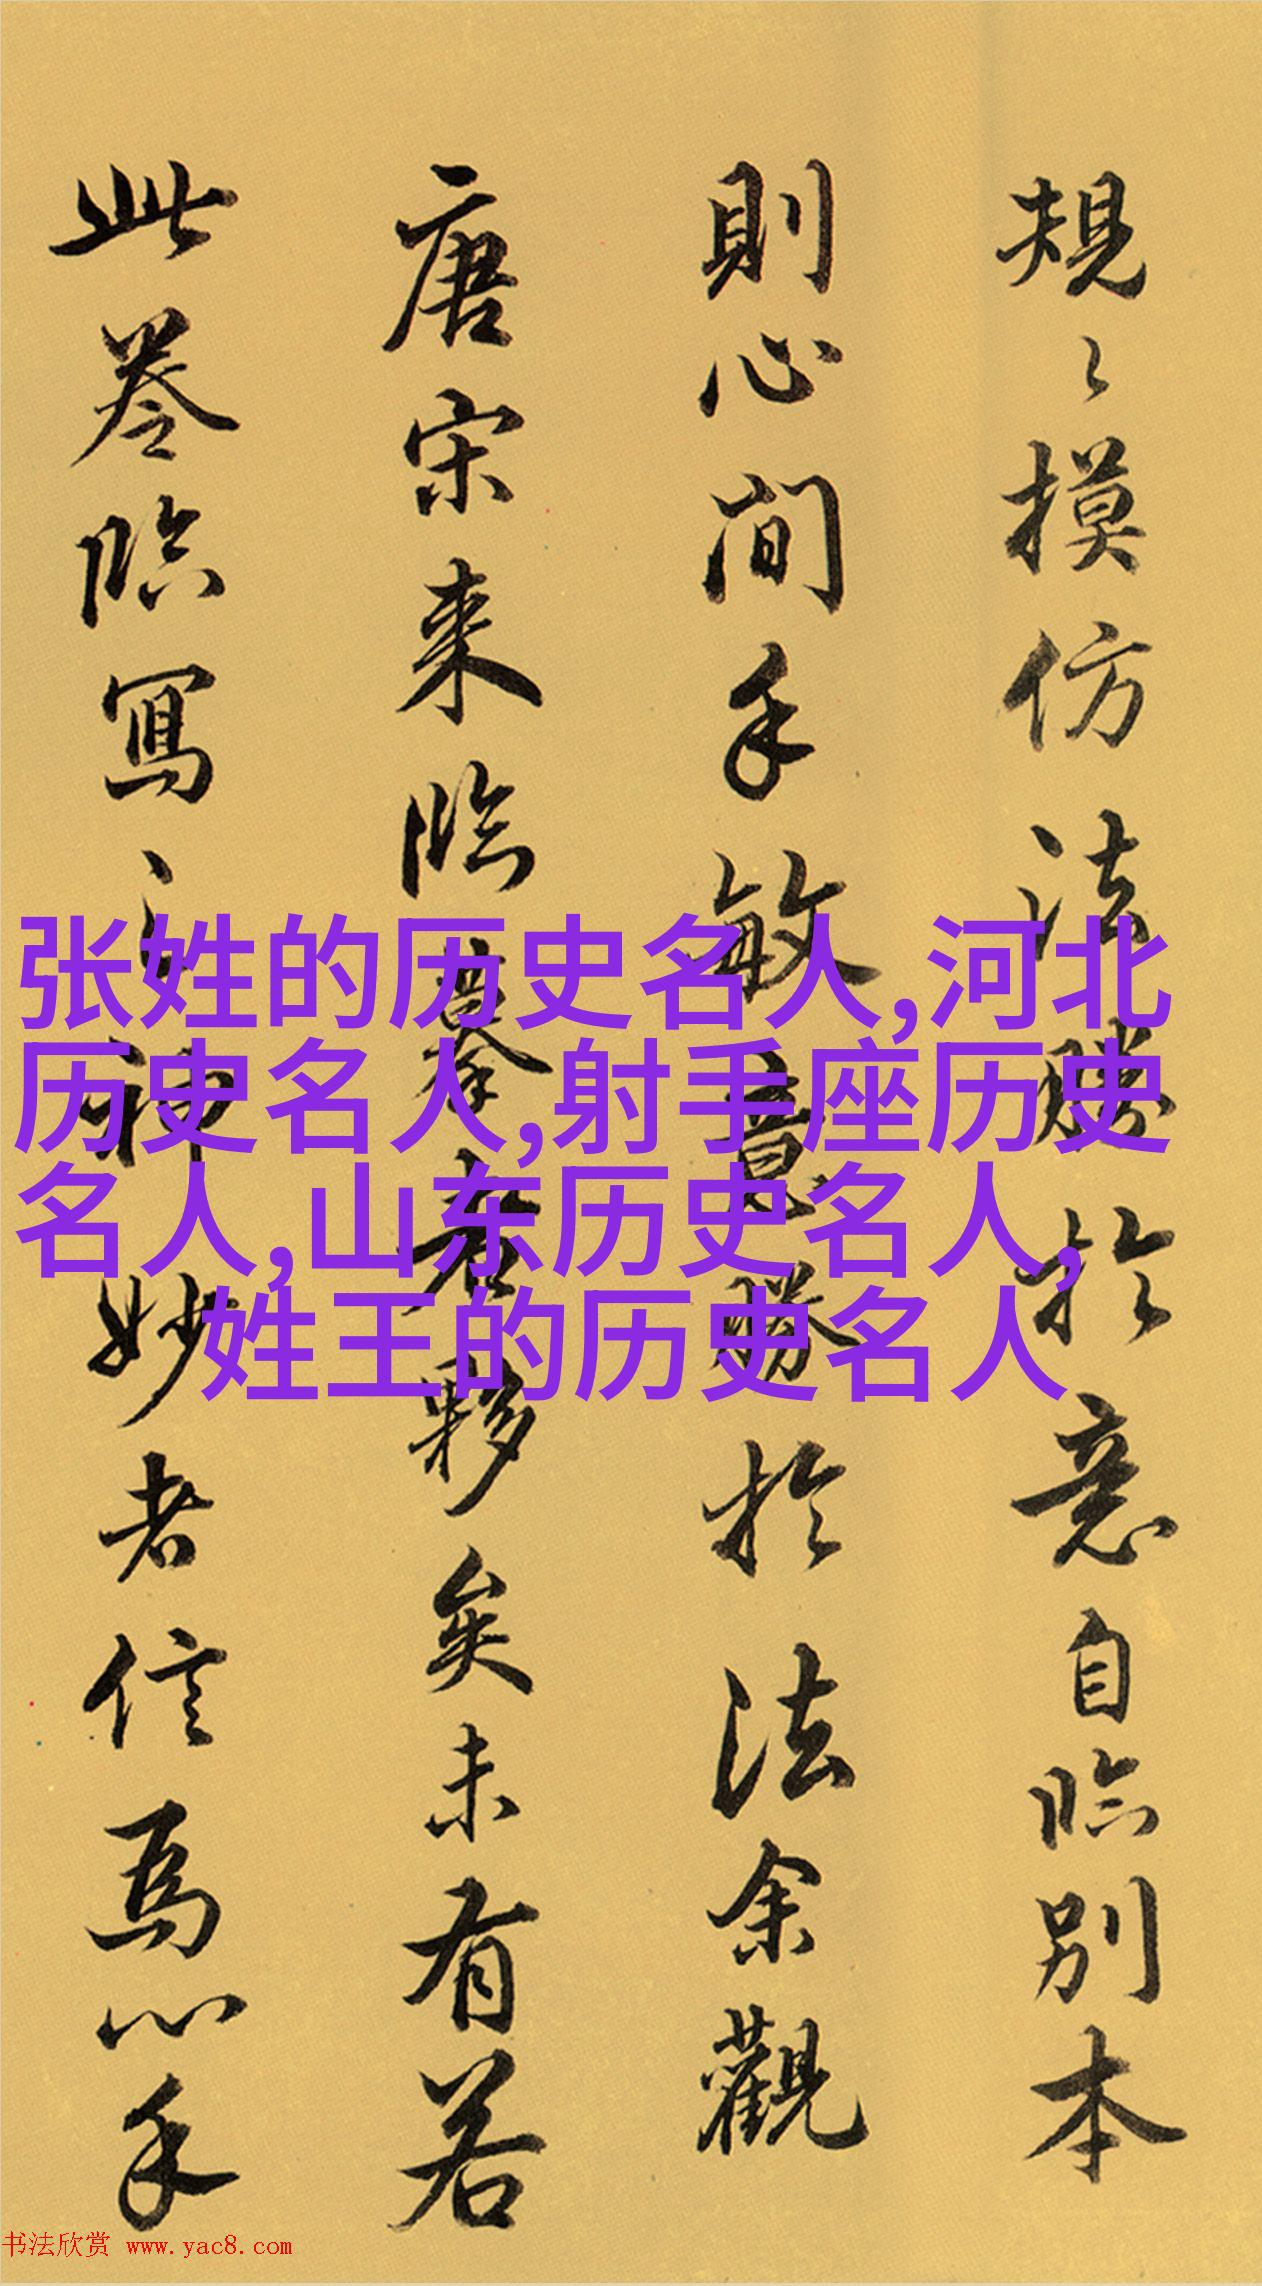 規〻摸仿法勝於意自臨別本
則心閒手敏意勝於法余觀
唐宋来臨摹者夥矣未有若
此卷臨寫之神妙者信爲心手
张姓的历史名人,河北
历史名人,射手座历史
名人,山东历史名人,
姓王的历史名人
书法欣赏 www.yac8.com